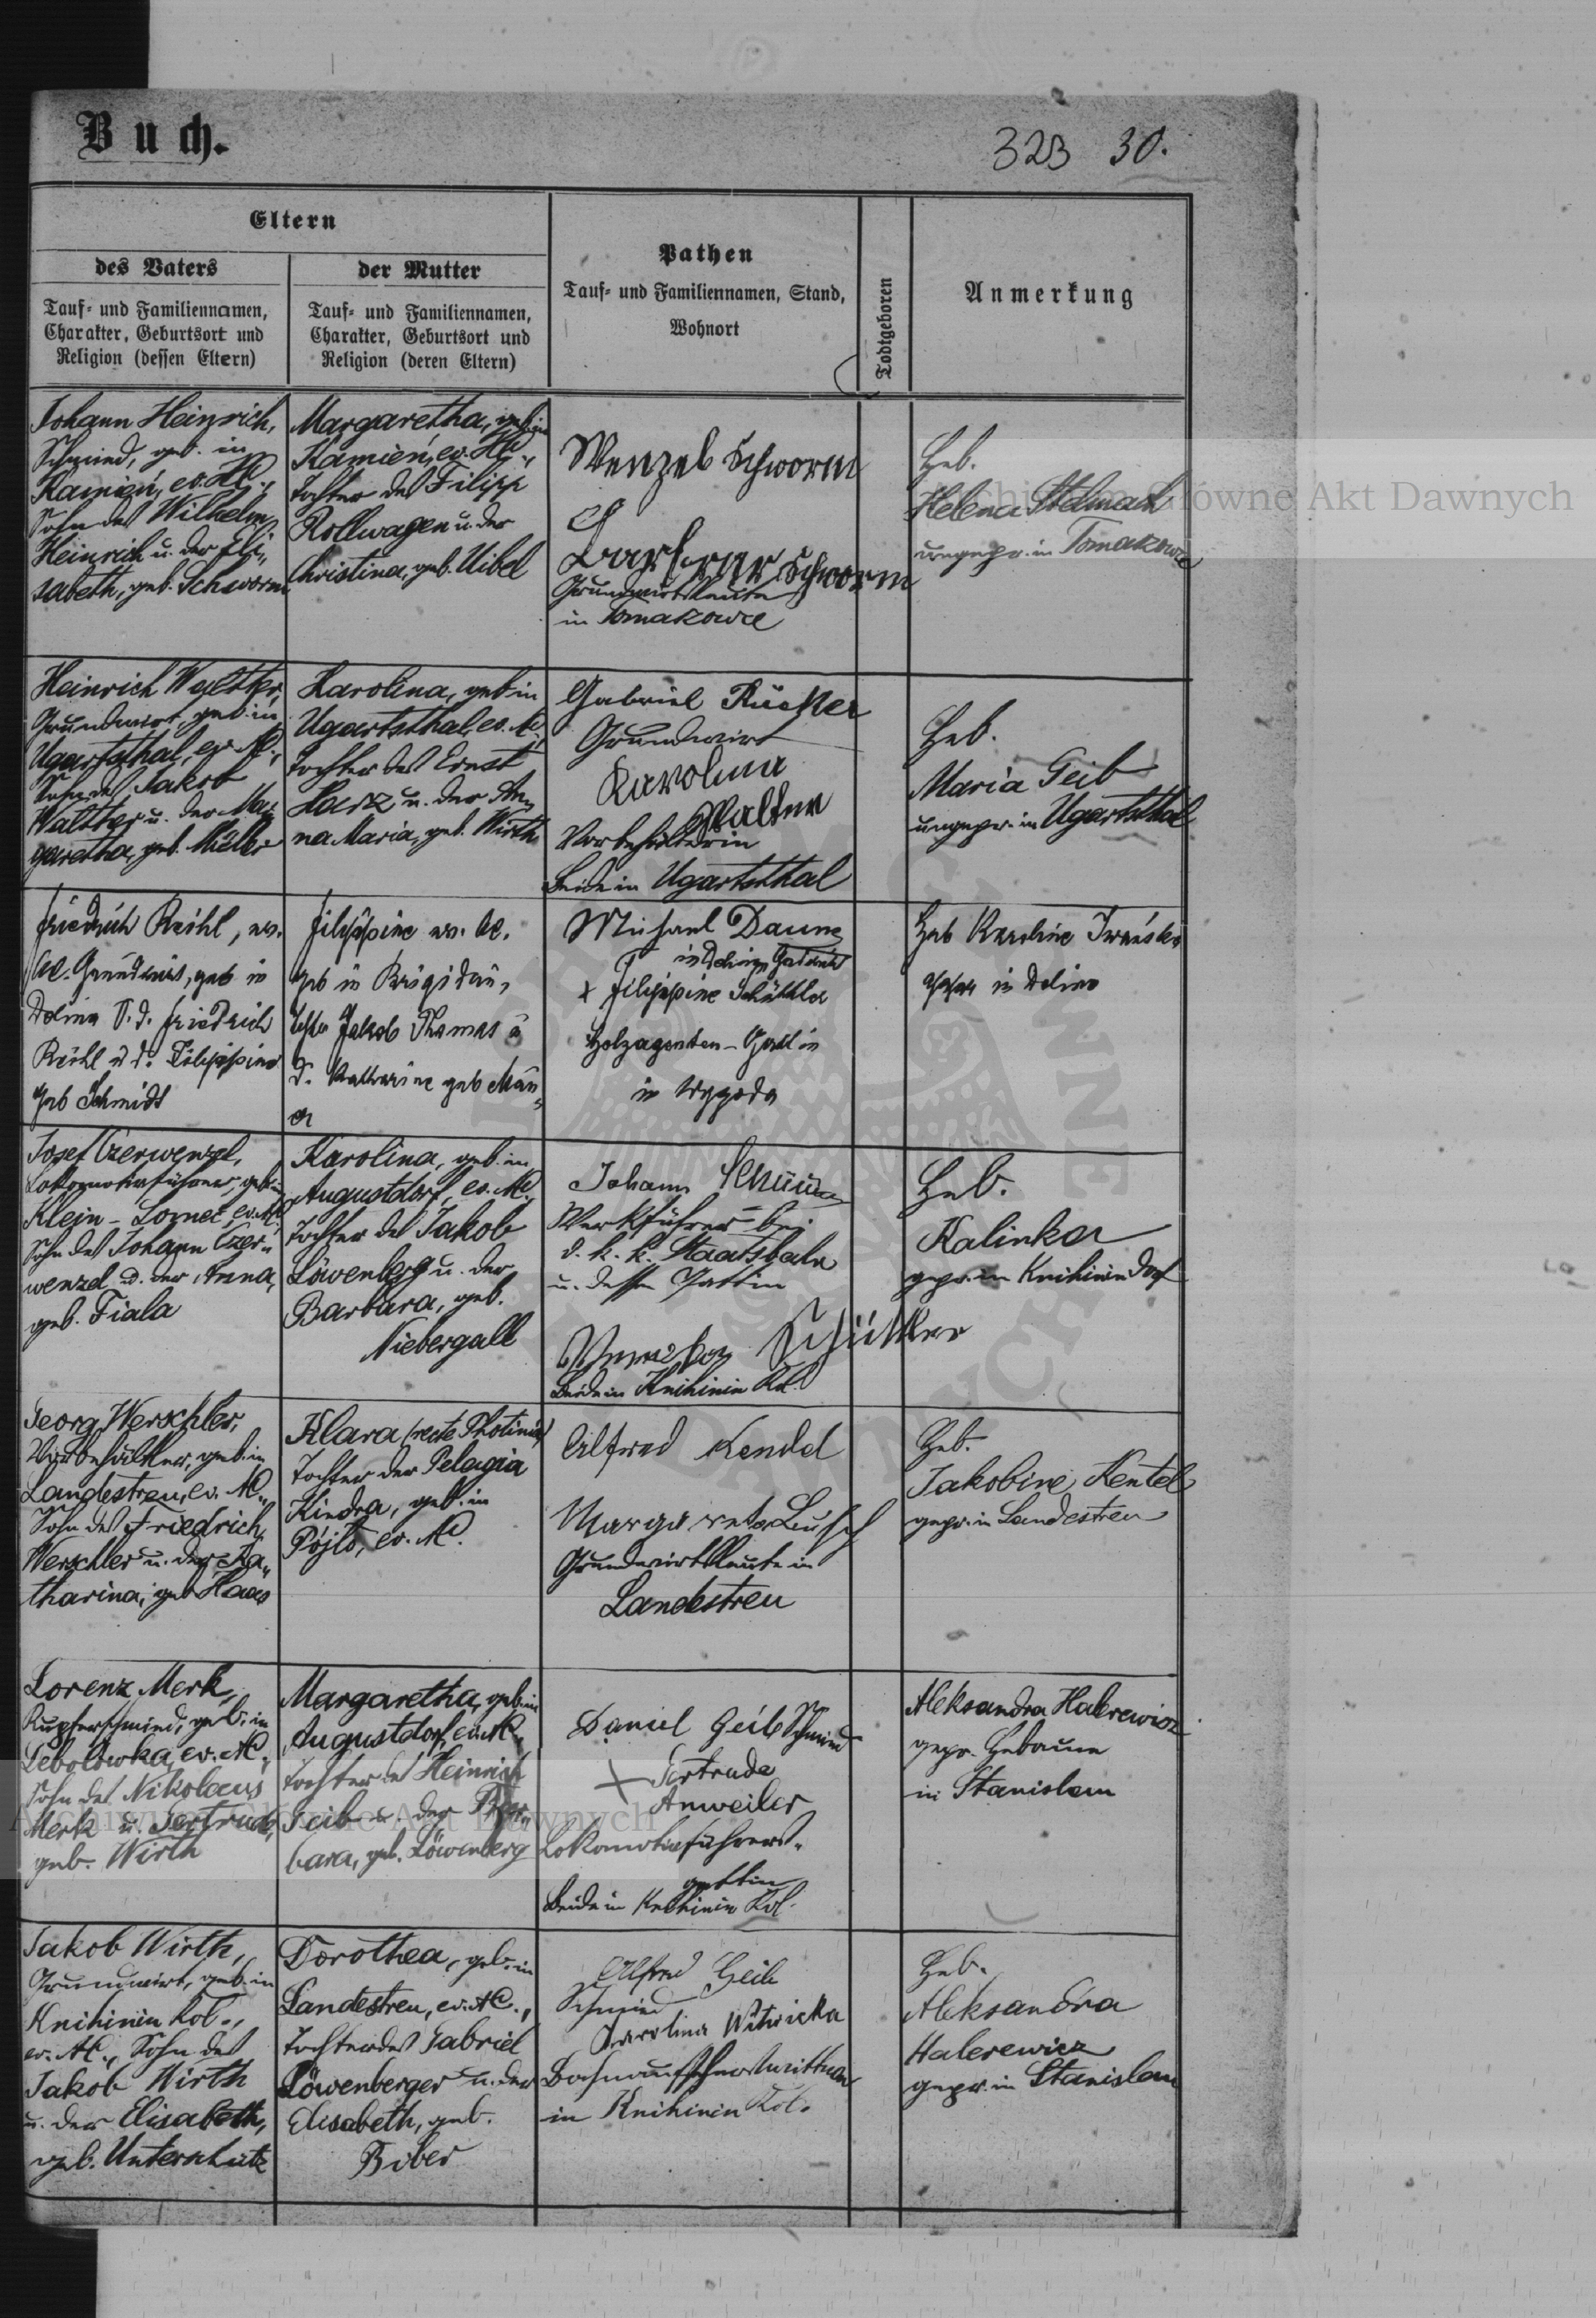 Buch.
323 30.
Eltern
des Vaters
Tauf- und Familiennamen,
Charakter, Geburtsort und
Religion (dessen Eltern)
der Mutter
Tauf- und Familiennamen,
Charakter, Geburtsort und
Religion (deren Eltern)
Pathen
Tauf- und Familiennamen, Stand,
Wohnort
Todtgeboren
Anmerkung
Johann Heinrich,
Schmied, geb. in
Kamień, ev. HC.,
Sohn des Wilhelm
Heinrich u. der Eli-
sabeth, geb. Schworm
Margaretha, geb. in
Kamień, ev. HC.,
Tochter des Filipp
Rollwagen u. der
Christina, geb. Uibel
Wenzel Schworm
Barbara Schworm
Grundwirtsleute
in Tomaszowce
Heb.
Helena Stelmach
ungepr. in Tomaszowce
Heinrich Walther,
Grundwirt, geb. in
Ugartsthal, ev. AC.,
Sohn des Jakob
Walther u. der Mar-
garetha, geb. Müller
Karolina, geb. in
Ugartsthal, ev. AC.,
Tochter des Ernst
Harz u. der An-
na Maria, geb. Wirth
Gabriel Rücker
Grundwirt
Karolina
Walter
Vorbehälterin
Beide in Ugartsthal
Heb.
Maria Geib
ungepr. in Ugartsthal
Friedrich Reihl, ev.
AC. Grundwirt, geb in
Dolina S. d. Friedrich
Reihl u d. Filippine
geb Schmidt
Filippine ev. AC.
geb in Brigidau,
Tochter Jakob Thomas u
d. Katharine geb Mau-
er
Michael Daum
in Dolina
+ Filippine Schüttler
Holzagenten-Gattin
in Wygoda
Heb Karoline
in Dolina
Josef Czerwenzel,
Lokomotivführer, geb. in
Klein-Lomec, ev. AC.,
Sohn des Johann Czer-
wenzel u. der Anna,
geb. Fiala
Karolina, geb. in
Augustdorf, ev. AC.,
Tochter des Jakob
Löwenberg u. der
Barbara, geb.
Niebergall
Johann
Werkführer bei
d. k. k. Staatsbahn
u. dessen Gattin
Schüttler
Beide in Knihinin Kol.
Heb.
Kalinka
gepr. in Knihinin Dorf
Georg Werschler,
Vorbehälter, geb. in
Landestreu, ev. AC.,
Sohn des Friedrich
Werschler u. der Ka-
tharina, geb. Haas
Klara (recte Photinia)
Tochter der Pelagia
Kindra, geb. in
Pójło, ev. AC.
Alfred Kendel
Margareta Leusch
Grundwirtsleute in
Landestreu
Heb.
Jakobine Kentel
gepr. in Landestreu
Lorenz Merk,
Kupferschmied, geb. in
Debolówka, ev. AC.,
Sohn des Nikolaus
Merk u. Gertrude,
geb. Wirth
Margaretha, geb. in
Augustdorf, ev. AC.,
Tochter des Heinrich
Geib u. der Bar-
bara, geb. Löwenberg
Daniel Geib Schmied
+ Gertrude
Anweiler
Lokomotivführers-
gattin
Beide in Knihinin Kol.
Aleksandra Halerewicz
gepr. Hebamme
in Stanislau
Jakob Wirth,
Grundwirt, geb. in
Knihinin Kol.,
ev. AC., Sohn des
Jakob Wirth
u. der Elisabeth,
geb. Unterschütz
Dorothea, geb. in
Landestreu, ev. AC.,
Tochter des Gabriel
Löwenberger u. der
Elisabeth, geb.
Biber
Alfred Geib
Schmied
Karolina Witwicka
Bahnaufseherswittwe
in Knihinin Kol.
Heb.
Aleksandra
Halerewicz
gepr. in Stanislau
Archiwum Główne Akt Dawnych
Archiwum Główne Akt Dawnych